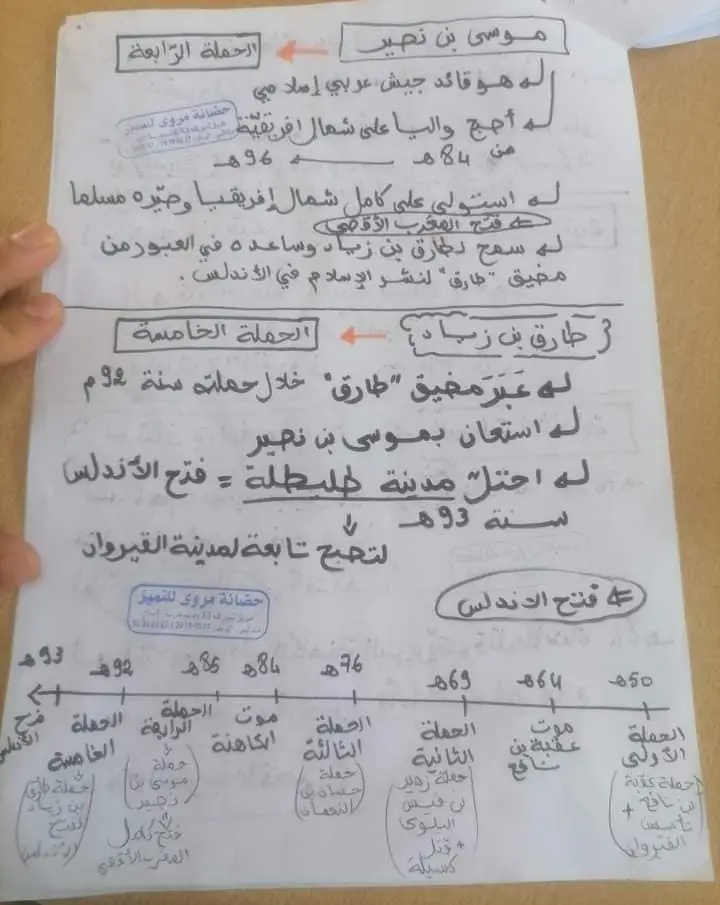 موسى بن نصير ← الحملة الرابعة
هو قائد جيش عربي إسلامي
أصبح واليا على شمال افريقيّة
من 84هـ ← 96هـ
حضانة مروى للتميز
استولى على كامل شمال إفريقيا وصيّره مسلما
⇐ فتح المغرب الأقصى
سمح لطارق بن زياد وساعده في العبور من
مضيق "طارق" لنشر الإسلام في الأندلس.
طارق بن زياد ← الحملة الخامسة
عَبَرَ مضيق "طارق" خلال حملته سنة 92م
استعان بموسى بن نصير
احتلّ مدينة طليطلة = فتح الأندلس
سنة 93هـ
لتصبح تابعة لمدينة القيروان
⇐ فتح الاندلس
حضانة مروى للتميز
50هـ
الحملة
الأولى
(حملة عقبة
بن نافع +
تأسيس
القيروان)
64هـ
موت
عقبة بن
نافع
69هـ
الحملة
الثانية
(حملة زهير
بن قيس
البلوي
+ قتل
كسيلة)
76هـ
الحملة
الثالثة
(حملة
حسان بن
النعمان)
84هـ
موت
الكاهنة
85هـ
الحملة
الرابعة
(حملة
موسى بن
نصير)
فتح كامل
المغرب الأقصى
92هـ
الحملة
الخامسة
(حملة طارق
بن زياد
لفتح
الأندلس)
93هـ
فتح
الأندلس